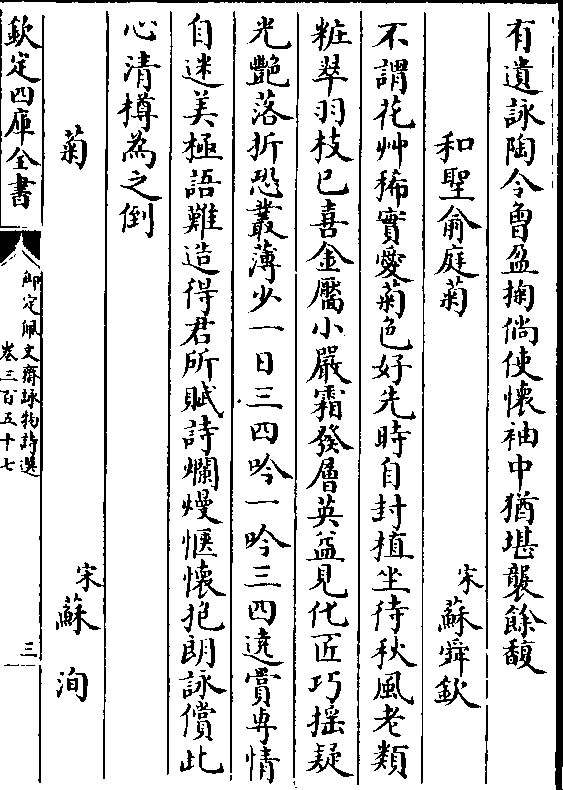 有遺詠陶令曽盈掬倘使懷袖中猶堪襲餘馥
和聖俞庭菊
宋
蘇舜欽
不謂花艸稀實愛菊色好先時自封植坐待秋風老類
粧翠羽枝已喜金靨小嚴霜發層英益見化匠巧揺疑
光艷落折恐叢薄少一日三四吟一吟三四遶賞專情
自迷美極語難造得君所賦詩爛熳愜懷抱朗詠償此
心清樽為之倒
菊
宋
蘇洵
欽定四庫全書
御定佩文齋詠物詩選
卷三百五十七
三